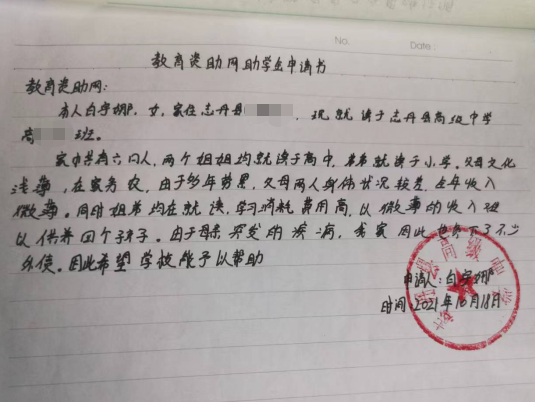 No.
Date
教育资助网助学金申请书
教育资助网:
本人白宇娜,女,家住志丹县 ,现就读于志丹县高级中学
高 班。
家中共有六口人,两个姐姐均就读于高中,弟弟就读于小学。父母文化
浅薄,在家务农,由于多年劳累,父母两人身体状况较差,全年收入
微薄。同时姐弟均在就读,学习消耗费用高,以微薄的收入难
以供养四个孩子。由于母亲突发的疾病,我家因此 下了不少
外债。因此希望学校能予以帮助
申请人:白宇娜
时间:2021年10月18日
县高级中学